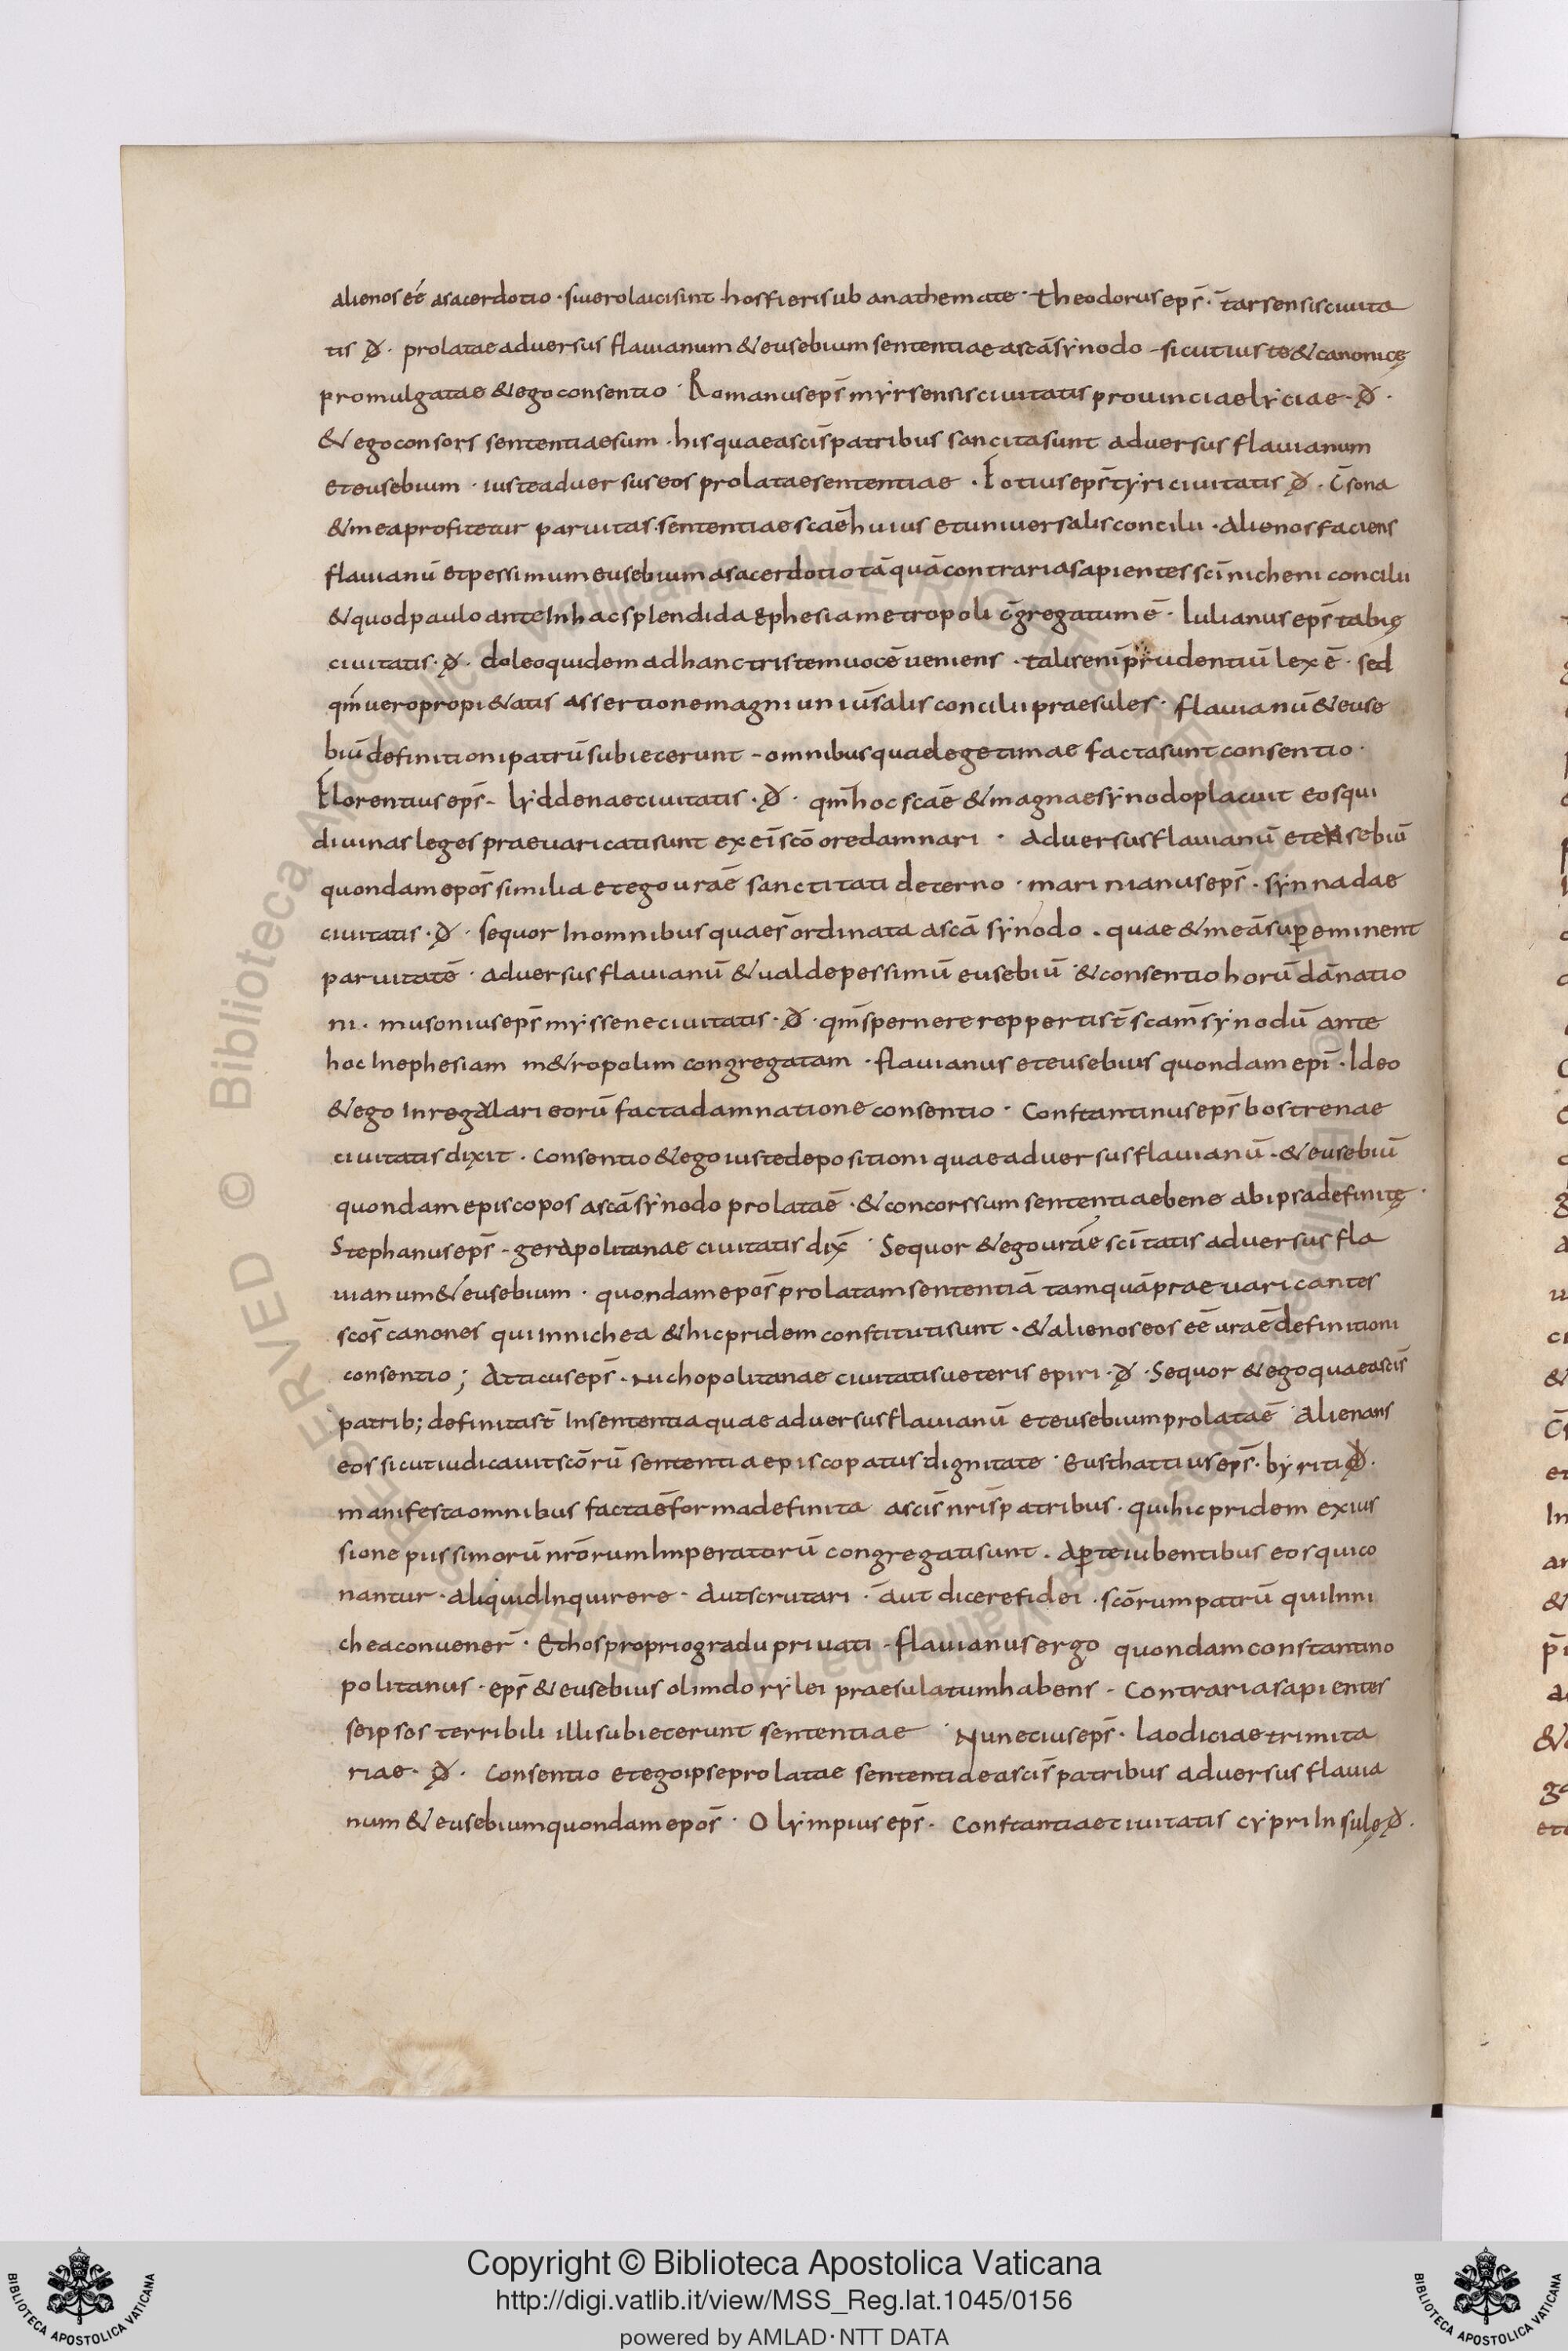 alienos eé asacerdotio · siuerolaicisint · hosfieri sub anathemate · theodorus eps̄ · tarsensis ciuita
tis ꝺ̸ · prolatae aduersus flauianum & eusebium sententiae a scā synodo - sicut iuste & canonicę
promulgatae & ego consentio · Romanus eps̄ myrsensis ciuitatis prouinciae lyciae · ꝺ̸ ·
& ego consors sententiae sum · his quae a scīs patribus sancita sunt aduersus flauianum
et eusebium · iuste aduersus eos prolatae sententiae · Fotius eps̄ tyri ciuitatis ꝺ̸ · c̄sona
& mea profitetur paruitas · sententiae scae huius et uniuersalis concilii · alienos faciens
flauianū et pessimum eusebium a sacerdotio tā quā contraria sapientes scī nicheni concilii
& quod paulo ante In hac splendida ephesia metropoli c̄gregatum ē · Iulianus eps̄ tabię
ciuitatis · ꝺ̸ · doleo quidem ad hanc tristem uocē ueniens · talis enī prudentiū lex ē · sed
qm̄ uero propi&atis assertione magni uniūsalis concilii praesules · flauianū & euse
biū definitioni patrū subiecerunt - omnibus quae legetimae facta sunt consentio ·
Florentius eps̄ - lyddenae ciuitatis · ꝺ̸ · qm̄ hoc scāe & magnae synodo placuit eos qui
diuinas leges praeuaricati sunt ex eī scō ore damnari · aduersus flauianū et eusebiū
quondam epos̄ similia et ego uraē sanctitati decerno · marinianus eps̄ · synnadae
ciuitatis · ꝺ̸ · sequor In omnibus quae s̄ ordinata a scā synodo · quae & meā suꝑeminent
paruitatē · aduersus flauianū & ualde pessimū eusebiū & consentio horū dānatio
ni · musonius eps̄ myssene ciuitatis · ꝺ̸ · qm̄ spernere repperti st̄ scam̄ synodū ante
hoc In ephesiam m&ropolim congregatam · flauianus et eusebius quondam epī · Ideo
& ego In regulari eorū facta damnatione consentio · Constantinus eps̄ bostrenae
ciuitatis dixit · consentio & ego iuste depositioni quae aduersus flauianū · & eusebiū
quondam episcopos a scā synodo prolata ē · & concors sum sententiae bene ab ipsa definitę ·
Stephanus eps̄ - gerapolitanae ciuitatis dix̄ · Sequor & ego uraē scītatis aduersus fla
uianum & eusebium · quondam epos̄ prolatam sententiā tamquā praeuaricantes
scos̄ canones qui In nichea & hic pridem constituti sunt · & alienos eos eē uraē definitioni
consentio ; Atticus eps̄ · Nichopolitanae ciuitatis ueteris epiri · ꝺ̸ · Sequor & ego quae a scīs
patrib; definita st̄ In sententia quae aduersus flauianū et eusebium prolata ē alienans
eos sicut iudicauit scōrū sententia episcopatus dignitate · Eusthatius eps̄ · byriti ꝺ̸ ·
manifesta omnibus facta ē forma definita a scīs nrīs patribus · qui hic pridem ex ius
sione piissimorū nrōrum Imperatorū congregati sunt · aꝑte iubentibus eos qui co
nantur · aliquid Inquirere · aut scrutari · aut dicere fidei · scōrum patrū qui In ni
chea conuener̄ · Et hos proprio gradu priuati - flauianus ergo quondam constantino
politanus · eps̄ & eusebius olim dorylei praesulatum habens - Contraria sapientes
seipsos terribili illi subiecerunt sententiae · Nunecius eps̄ · laodiciae trimita
riae · ꝺ̸ · Consentio et ego ipse prolatae sententiae a scīs patribus aduersus flauia
num & eusebium quondam epos̄ · Olympius eps̄ · Constantiae ciuitatis cypri Insulę ꝺ̸ ·
Copyright © Biblioteca Apostolica Vaticana
http://digi.vatlib.it/view/MSS_Reg.lat.1045/0156
powered by AMLAD·NTT DATA